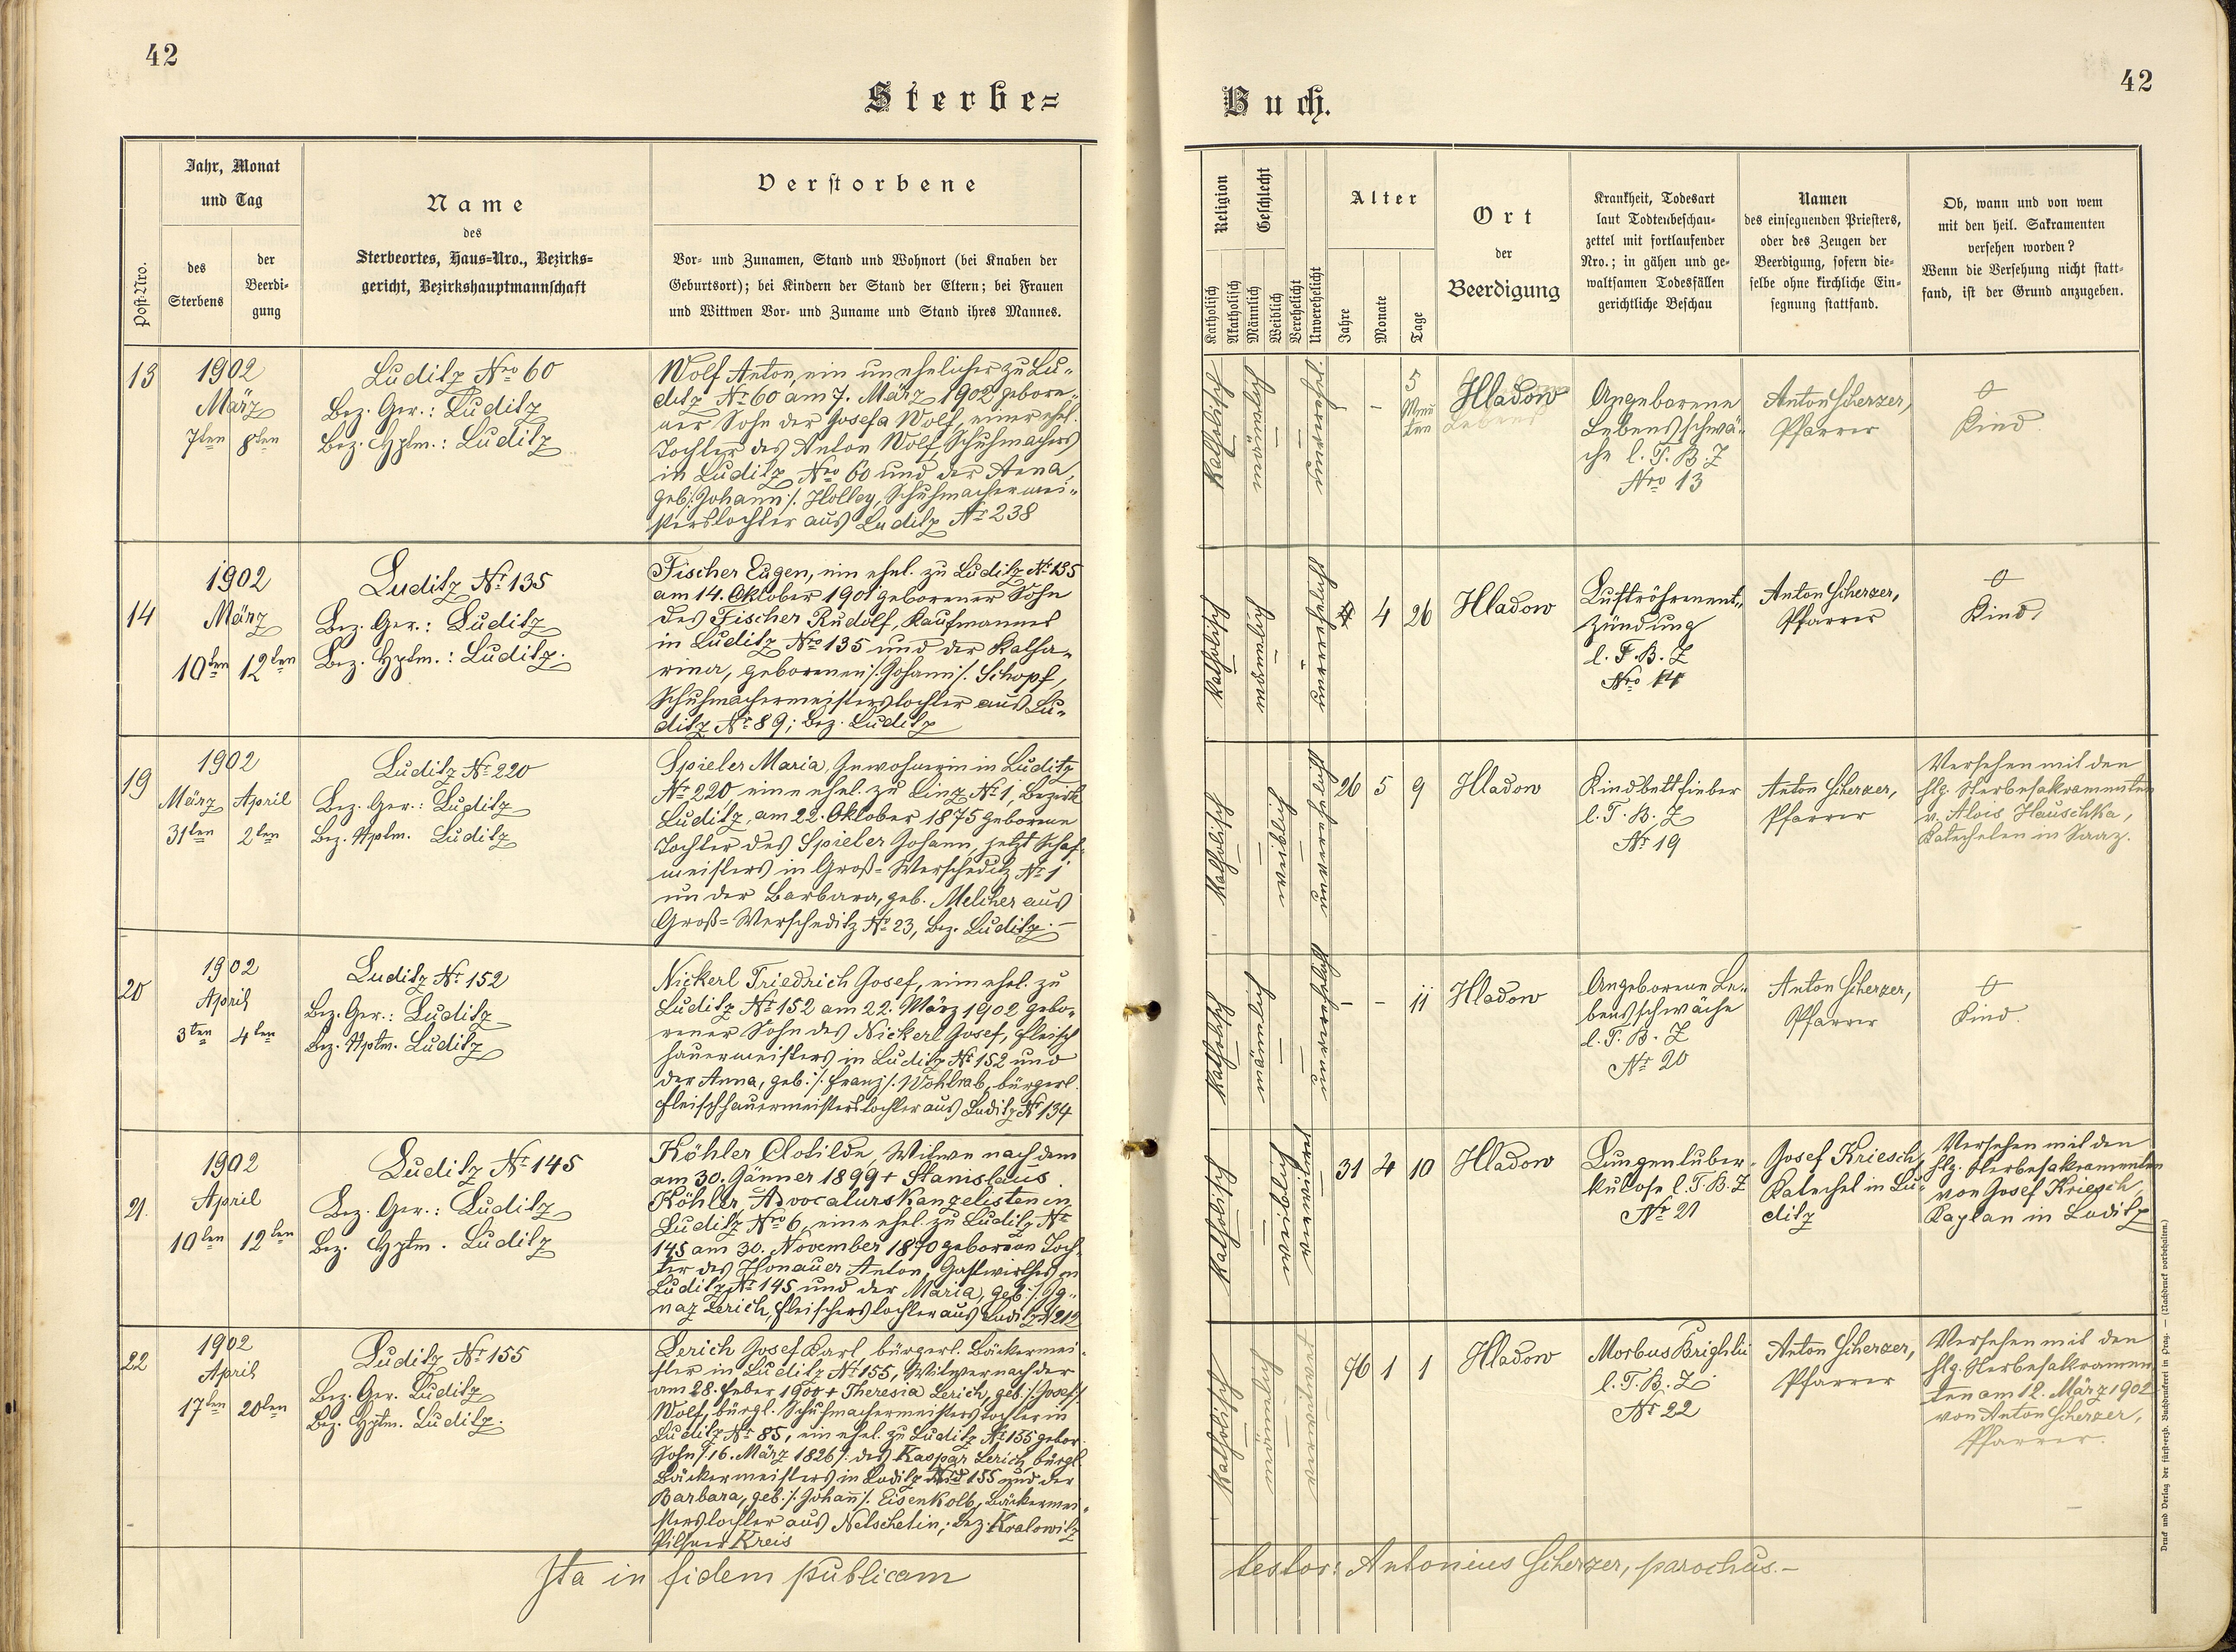 42
Sterbe=
Jahr, Monat
und Tag
Post-Nro.
des
Sterbens
der
Beerdi-
gung
Name
des
Sterbeortes, Haus=Nro., Bezirks=
gericht, Bezirkshauptmannschaft
Verstorbene
Vor- und Zunamen, Stand und Wohnort (bei Knaben der
Geburtsort); bei Kindern der Stand der Eltern; bei Frauen
und Wittwen Vor- und Zuname und Stand ihres Mannes.
13
1902
März
7ten 8ten
Luditz Nro 60
Bez. Ger.: Luditz
Bez. Hptm.: Luditz
Wolf Anton, ein unehelicher zu Lu-
ditz No 60 am 7. März 1902 gebore-
ner Sohn der Josefa Wolf, einer ehel.
Tochter des Anton Wolf, Schuhmachers
in Luditz Nro 60 und der Anna
geb. /:Johann:/ Holley, Schuhmachermei-
sterstochter aus Luditz No 238
14
1902
März
10ten 12ten
Luditz No 135
Bez. Ger.: Luditz
Bez. Hptm.: Luditz.
Fischer Eugen, ein ehel. zu Luditz No 135
am 14. Oktober 1901 geborener Sohn
des Fischer Rudolf, Kaufmannes
in Luditz Nro 135 und der Katha-
rina, geborenen /:Johann:/ Schopf,
Schuhmachermeisterstochter aus Lu-
ditz No 89; Bez. Luditz
19
1902
März April
31ten 2ten
Luditz No 220
Bez. Ger.: Luditz
Bez. Hptm. Luditz
Spieler Maria, Inwohnerin in Luditz
No 220 eine ehel. zu Linz No 1, Bezirk
Luditz, am 22. Oktober 1875 geborene
Tochter des Spieler Johann, jetzt Schaf-
meisters in Groß=Werscheditz No 1
un der Barbara, geb. Melcher aus
Groß=Werscheditz No 23, Bez. Luditz.
20
1902
April
3ten 4ten
Luditz No 152
Bez. Ger.: Luditz
Bez. Hptm. Luditz
Nickerl Friedrich Josef, ein ehel. zu
Luditz No 152 am 22. März 1902 gebo-
rener Sohn des Nickerl Josef, Fleisch
hauermeisters in Luditz No 152 und
der Anna, geb. /:Franz:/ Wohlrab, bürgerl.
Fleischhauermeisterstochter aus Luditz No 134
21.
1902
April
10ten 12ten
Luditz No 145
Bez. Ger.: Luditz
Bez. Hptm. Luditz
Köhler Clotilde, Witwe nach dem
am 30. Jänner 1899 + Stanislaus
Köhler, Advocaturskanzelisten in
Luditz Nro 6, eine ehel. zu Luditz No
145 am 30. November 1870 geborene Toch-
ter des Honauer Anton, Gastwirthes in
Luditz No 145 und der Maria, geb. /:Ig-
naz Lerich, Fleischerstochter aus Luditz No 212
22
1902
April
17ten 20ten
Luditz No 155
Bez. Ger. Luditz
Bez. Hptm. Luditz.
Lerich Josef Karl, bürgerl. Bäckermei-
ster in Luditz No 155, Witwer nach der
am 28. Feber 1900 + Theresia Lerich, geb. /:Josef:/
Wolf, bürgl. Schuhmachermeisterstochter in
Luditz No 85, ein ehel. zu Luditz No 155 gebor.
Sohn /:16. März 1826:/ des Kaspar Lerich, bürgl.
Bäckermeisters in Luditz Nro 155 und der
Barbara, geb. /:Johann:/ Eisenkolb, Bäckermei-
sterstochter aus Netschetin, Bez. Kralowitz
Pilsner Kreis
Ita in fidem publicam
42
Buch.
Religion
Katholisch
Akatholisch
Geschlecht
Männlich
Weiblich
Verehelicht
Unverehelicht
Alter
Jahre
Monate
Tage
Ort
der
Beerdigung
Krankheit, Todesart
laut Todtenbeschau-
zettel mit fortlaufender
Nro.; in gähen und ge-
waltsamen Todesfällen
gerichtliche Beschau
Namen
des einsegnenden Priesters,
oder des Zeugen der
Beerdigung, sofern die-
selbe ohne kirchliche Ein-
segnung stattfand.
Ob, wann und von wem
mit den heil. Sakramenten
versehen worden?
Wenn die Versehung nicht statt-
fand, ist der Grund anzugeben.
katholisch
männlich
unverehel.
- - 5
Minu
ten
Hladow
Angeborene
Lebensschwä-
che l. T. B. Z
Nro 13
Anton Scherzer,
Pfarrer
0
Kind
katholisch
männlich
unverehelicht
4 26
Hladow
Luftröhrenent-
zündung
l. T. B. Z
Nro 14
Anton Scherzer,
Pfarrer
0
Kind
katholisch
weiblich
unverehelicht
26 5 9
Hladow
Kindbettfieber
l. T. B. Z
No 19
Anton Scherzer,
Pfarrer
Versehen mit den
hlg. Sterbesakramenten
v. Alois Hauschka,
Katecheten in Saaz.
katholisch
männlich
unverehelicht
- - 11
Hladow
Angeborene Le-
bensschwäche
l. T. B. Z
No 20
Anton Scherzer,
Pfarrer
0
Kind
katholisch
weiblich
verwitwet
31 4 10
Hladow
Lungentuber-
kulose l. T. B. Z
No 21
Josef Kriesch,
Katechet in Lu-
ditz
Versehen mit den
hlg. Sterbesakramenten
von Josef Kriesch
Kaplan in Luditz
katholisch
männlich
verwitwet
76 1 1
Hladow
Morbus Brightii
l. T. B. Z
No 22
Anton Scherzer,
Pfarrer
Versehen mit den
hlg. Sterbesakramen
ten am 12. März 1902
von Anton Scherzer,
Pfarrer.
testor: Antonius Scherzer, parochus.-
Druck und Verlag der fürst-erzb. Buchdruckerei in Prag. — (Nachdruck vorbehalten.)